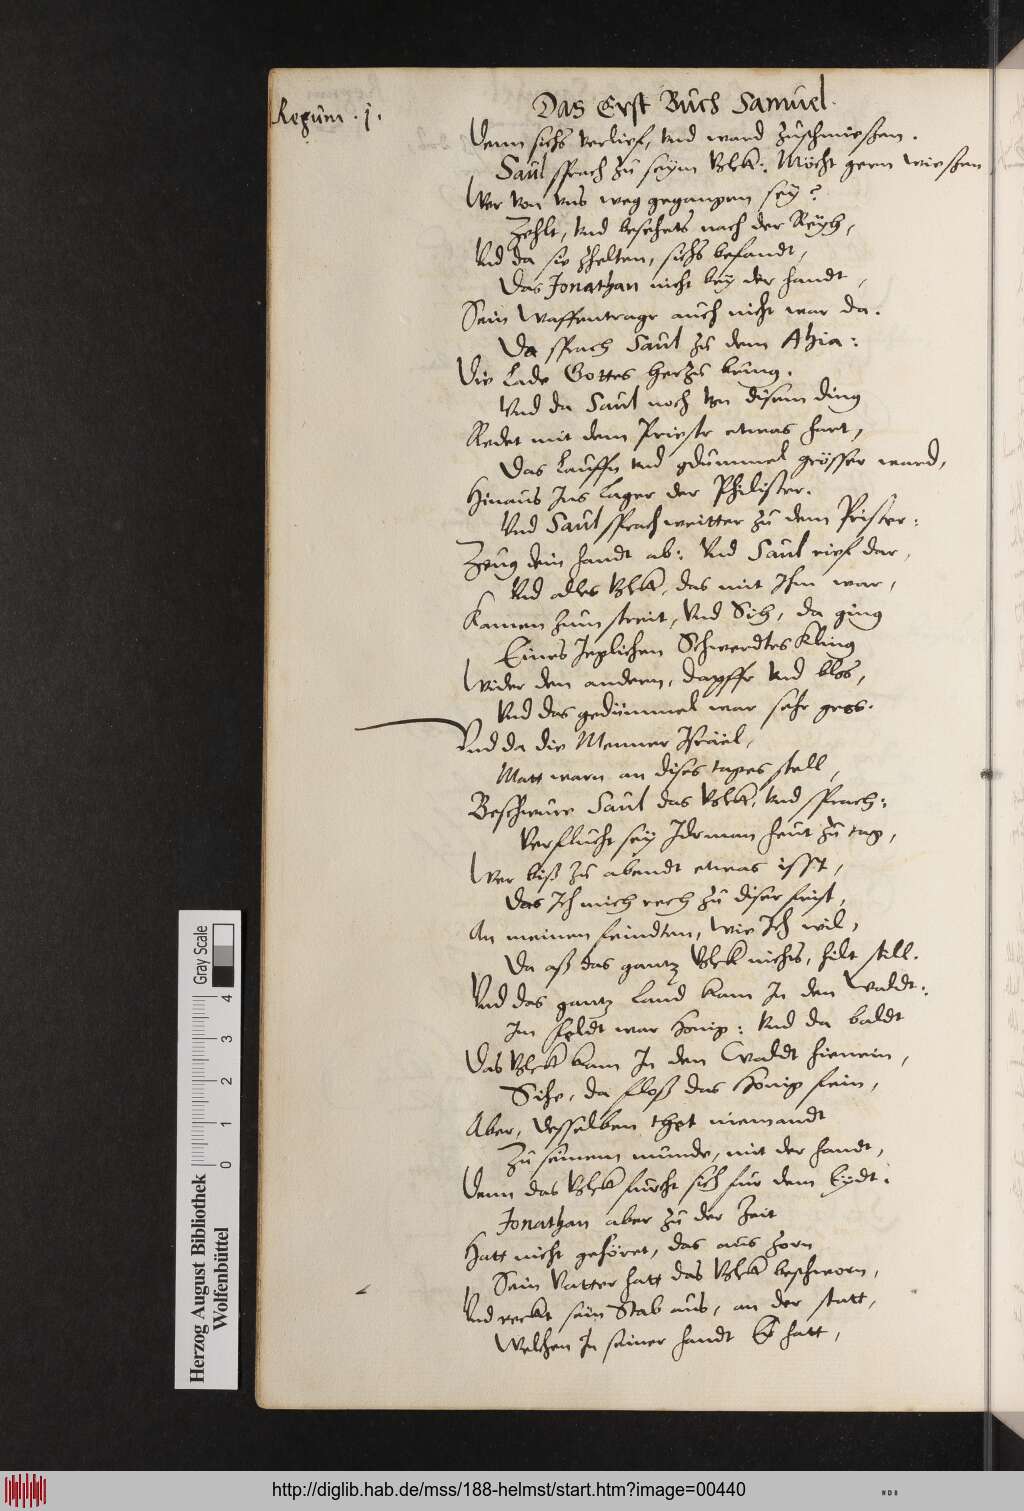 Regum . j.
Das Erst Buch Samuel.
Denn sichs verlief, vnd ward zuschmiessen.
Saul sprach zu seÿm Volck: Möcht gern wiessen
Wer von vns weg gegangen seÿ?
Zehlt, vnd besehets nach der Reÿh,
Vnd da sie zhelten, sichs befandt,
Das Jonathan nicht beÿ der handt,
Sein Waffentragr auch nicht war da.
Da sprach Saul zu dem Ahia:
Die Lade Gottes herzu bring.
Vnd da Saul noch von disem ding
Redet mit dem Priestr etwas hart,
Das Lauffn vnd gdummel grösser ward,
Hinaus Ins Lager der Philister.
Vnd Saul sprach weitter zu dem Prister:
Zeug dein handt ab: Vnd Saul rief dar,
Vnd alles Volck, das mit Ihm war,
Kamen zum streit, Vnd Sih, da ging
Eines Jeglichen Schwerdtes Kling
Wider den andern, dapffr vnd blos,
Vnd das gedümmel war sehr gros.
Vnd da die Menner Israel,
Matt warn an dises tages stell,
Beschwure Saul das Volck, vnd sprach:
Verflucht seÿ Iderman heut zu tag,
Wer biß zu abendt etwas isst,
Das Ich mich rech zu diser frist,
An meinen feindten, wie Ich wil,
Da aß das gantz Volck nichts, hilt still.
Vnd das gantz Land kam In den Waldt:
Im feldt war Honig: Vnd da baldt
Das Volck kam In den Waldt hienein,
Sihe, da floß das Honig fein,
Aber, desselben thet niemandt
Zu seinem munde, mit der handt,
Denn das Volck furcht sich fur dem Eÿdt:
Jonathan aber zu der Zeit
Hatt nicht gehöret, das aus zorn
Sein Vatter hatt das Volck beschworn,
Vnd reckt sein Stab aus, an der statt,
Welchen In seiner handt Er hatt,
Herzog August Bibliothek
Wolfenbüttel
0 1 2 3 4
Gray Scale
http://diglib.hab.de/mss/188-helmst/start.htm?image=00440